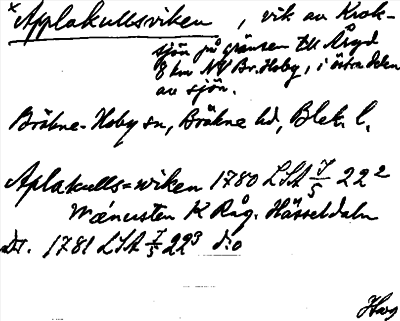 × Applakullsviken, vik av Krok-
sjön på gränsen till Åryd
8 km NV Br. Hoby, i östra delen
av sjön.
Bräkne-Hoby sn, Bräkne hd, Blek. l.
Aplakulls=wiken 1780 LSA J/5 22²
K Råg. Hässeldala
Dt. 1781 LSA J/5 22³ d:o